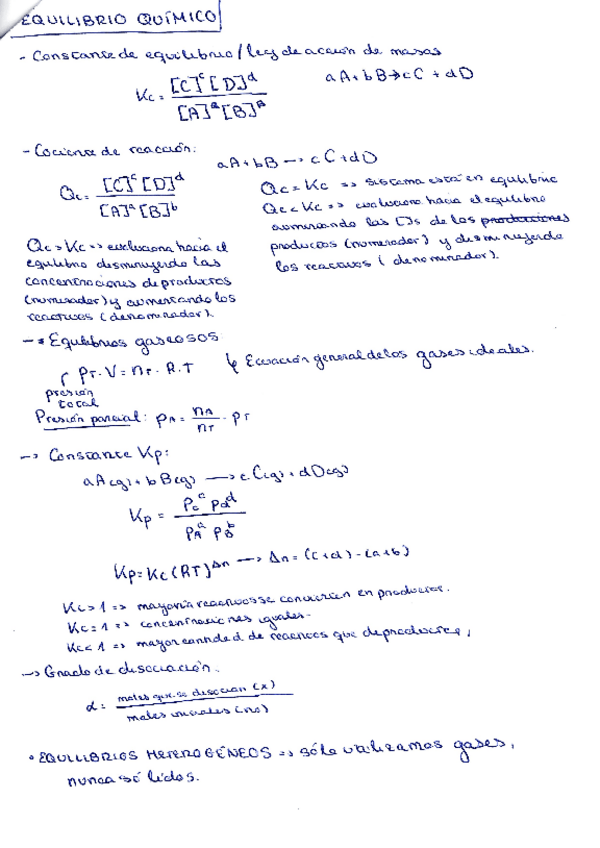 EQUILIBRIO QUÍMICO
- Constante de equilibrio/ley de acción de masas
Kc = [C]^c [D]^d / [A]^a [B]^a
aA + bB → cC + dD
- Cociente de reacción:
aA + bB → cC + dD
Qc = [C]^c [D]^d / [A]^a [B]^b
Qc = Kc => sistema está en equilibrio
Qc < Kc => evoluciona hacia el equilibrio
aumentando las []s de los producciones
productos (numerador) y disminuyendo
los reactivos (denominador).
Qc > Kc => evoluciona hacia el
equilibrio disminuyendo las
concentraciones de productos
(numerador) y aumentando los
reactivos (denominador).
→ * Equilibrios gaseosos
PT · V = nT · R · T
↳ Ecuación general de los gases ideales.
presión
total
Presión parcial: PA = nA / nT · PT
→ Constante Kp:
aA(g) + bB(g) → cC(g) + dD(g)
Kp = Pc^c Pd^d / PA^a PB^b
Kp = Kc (RT)^Δn → Δn = (c+d) - (a+b)
Kc > 1 => mayoría reactivos se convierten en productos.
Kc = 1 => concentraciones iguales.
Kc < 1 => mayor cantidad de reactivos que de productos.
→ Grado de disociación.
α = moles que se disocian (x) / moles iniciales (no)
• EQUILIBRIOS HETEROGÉNEOS => sólo utilizamos gases,
nunca sólidos.